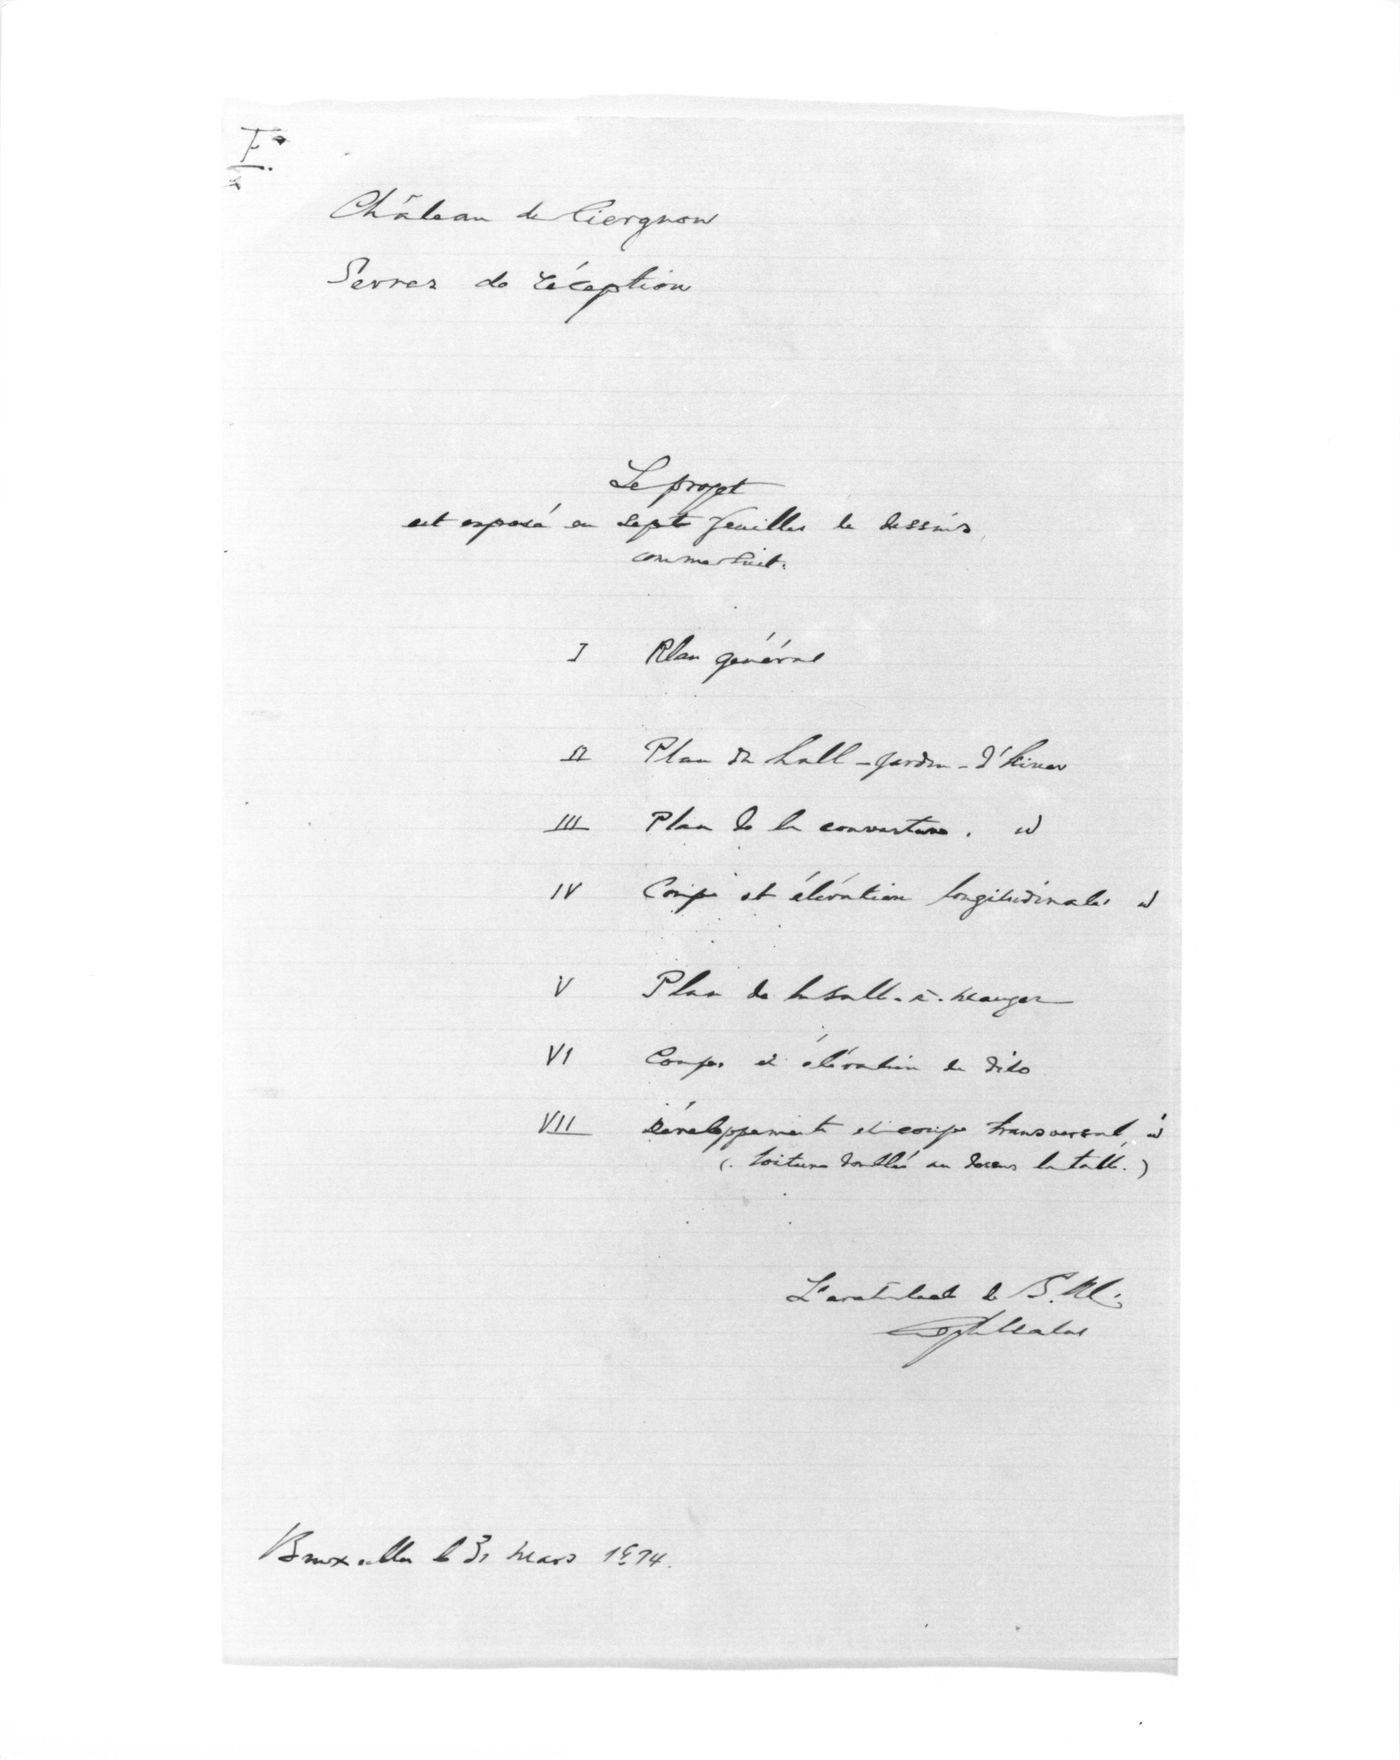 F°
Château de Ciergnon
Serres de réception
Le projet
est exposé en sept feuilles de dessins,
comme suit.
I Plan général
II Plan du hall - jardin - d'hiver
III Plan de la couverture. id
IV Coupe et élévation longitudinales id
V Plan de la salle-à-manger
VI Coupe et élévation de dito
VII Développement et coupe transversal, id
(toiture doublée au dessus la salle.)
L'architecte de S. M.
Bruxelles le 31 mars 1874.